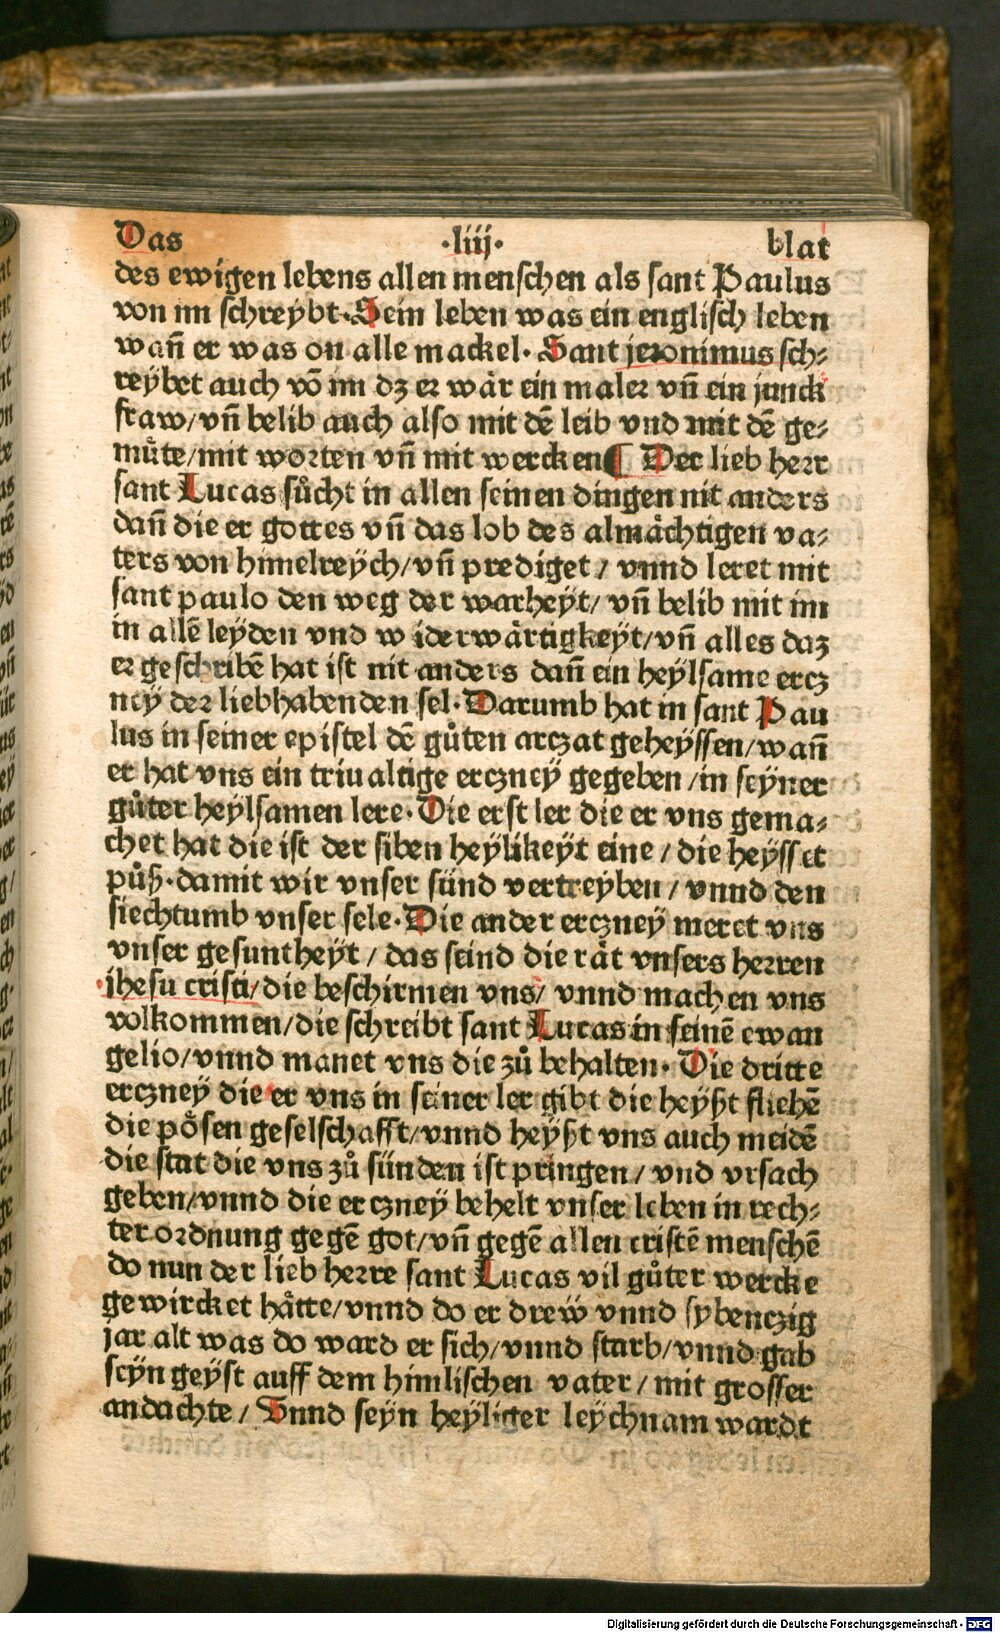 Das ·liij· blat
des ewigen lebens allen menschen als sant Paulus
von im schreybt. Sein leben was ein englisch leben
wañ er was on alle mackel. Sant jeronimus sch⸗
reybet auch võ im dz er wär ein maler vñ ein junck
fraw/vñ belib auch also mit dē leib vnd mit dē ge⸗
mu̇te/mit worten vñ mit wercken¶ Der lieb herr
sant Lucas sůcht in allen seinen dingen nit anders
dañ die er gottes vñ das lob des almächtigen va⸗
ters von himelreÿch/vñ prediget/ vnnd leret mit
sant paulo den weg der warheÿt/ vñ belib mit im
in allē leÿden vnd w iderwärtigkeÿt/vñ alles daz
er geschribē hat ist nit anders dañ ein heÿlsame ercz
neÿ der liebhabenden sel. Darumb hat in sant Pau
lus in seiner epistel dē gůten arczat geheÿssen/wañ
er hat vns ein triualtige erczneÿ gegeben/in seÿner
gůter heÿlsamen lere. Die erst ler die er vns gema⸗
chet hat die ist der siben heÿlikeÿt eine/die heÿsset
půß. damit wir vnser sünd vertreÿben/ vnnd den
siechtumb vnser sele. Die ander erczneÿ meret vns
vnser gesuntheÿt/ das seind die rät vnsers herren
ihesu cristi/die beschirmen vns/ vnnd machen vns
volkommen/die schreibt sant Lucas in seinē ewan
gelio/vnnd manet vns die zů behalten. Die dritte
erczneÿ die er vns in seiner ler gibt die heÿßt fliehē
die pösen geselschafft/vnnd heÿßt vns auch meidē
die stat die vns zů sünden ist pringen/ vnd vrsach
geben/vnnd die erczneÿ behelt vnser leben in rech⸗
ter ordnung gegē got/vñ gegē allen cristē menschē
do nun der lieb herre sant Lucas vil gůter wercke
gewircket hätte/vnnd do er drew vnnd sybenczig
jar alt was do ward er sich/vnnd starb/vnnd gab
seÿn geÿst auff dem himlischen vater/ mit grosser
andachte/ Vnnd seÿn heÿliger leÿchnam wardt
Digitalisierung gefördert durch die Deutsche Forschungsgemeinschaft - DFG